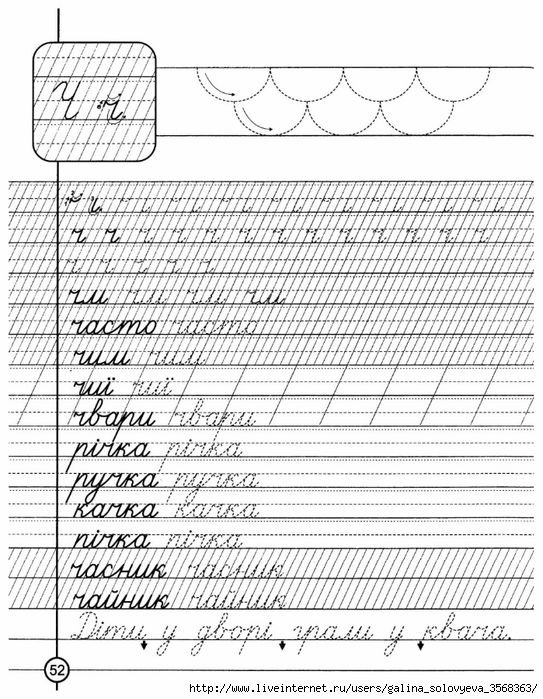 Ч ч
ч ч ч ч ч ч ч ч ч ч ч ч ч
ч ч ч ч ч
чм чм чм чм
часто часто
чим чим
чиї чиї
чвари чвари
річка річка
ручка ручка
качка качка
пічка пічка
часник часник
чайник чайник
Діти у дворі грали у квача.
52
http://www.liveinternet.ru/users/galina_solovyeva_3568363/